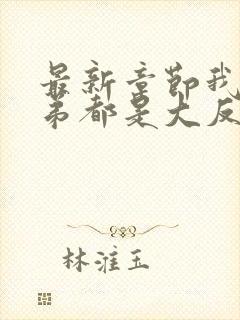 最新章节我
弟都是大反
林淮玉